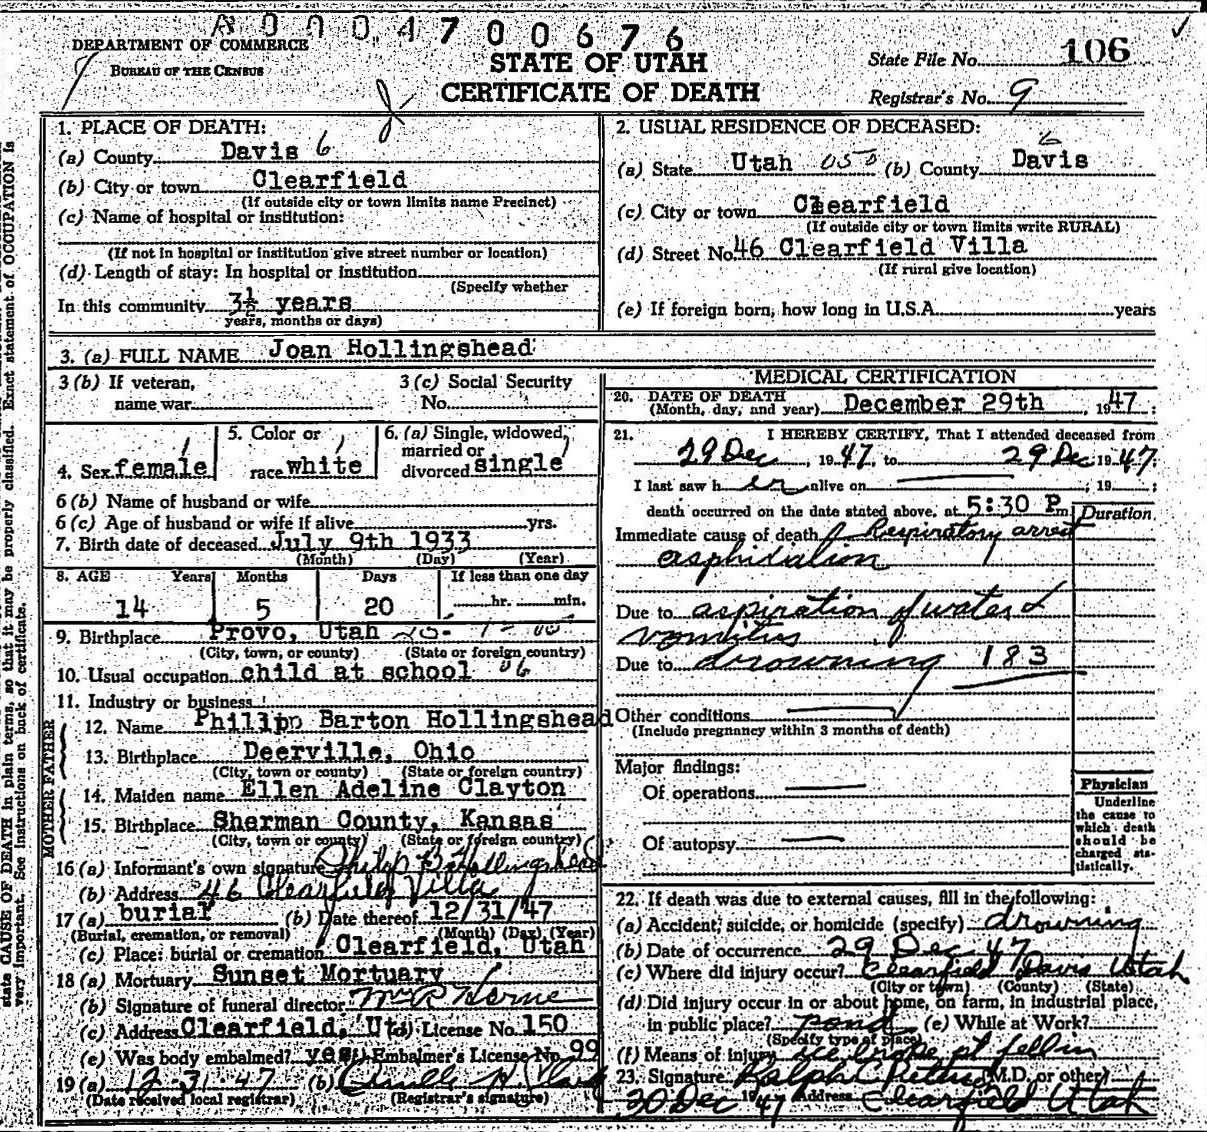 A000 4700676
DEPARTMENT OF COMMERCE
BUREAU OF THE CENSUS
STATE OF UTAH
CERTIFICATE OF DEATH
State File No. 106
Registrar's No. 9
1. PLACE OF DEATH:
(a) County Davis 6
(b) City or town Clearfield
(If outside city or town limits name Precinct)
(c) Name of hospital or institution:
(If not in hospital or institution give street number or location)
(d) Length of stay: In hospital or institution
(Specify whether
In this community 3½ years
years, months or days)
2. USUAL RESIDENCE OF DECEASED:
6
(a) State Utah 050 (b) County Davis
(c) City or town Clearfield
(If outside city or town limits write RURAL)
(d) Street No. 46 Clearfield Villa
(If rural give location)
(e) If foreign born, how long in U.S.A. years
3. (a) FULL NAME Joan Hollingshead
3 (b) If veteran,
name war
3 (c) Social Security
No.
4. Sex female
5. Color or
race white
6. (a) Single, widowed,
married or
divorced single
6 (b) Name of husband or wife
6 (c) Age of husband or wife if alive yrs.
7. Birth date of deceased July 9th 1933
(Month) (Day) (Year)
8. AGE Years Months Days If less than one day
14 5 20 hr. min.
9. Birthplace Provo, Utah
(City, town, or county) (State or foreign country)
10. Usual occupation child at school 06
11. Industry or business
12. Name Philipp Barton Hollingshead
13. Birthplace Deerville, Ohio
(City, town or county) (State or foreign country)
14. Maiden name Ellen Adeline Clayton
15. Birthplace Sherman County, Kansas
(City, town or county) (State or foreign country)
FATHER
MOTHER
16 (a) Informant's own signature Philip B Hollingshead
(b) Address 46 Clearfield Villa
17 (a) burial (b) Date thereof 12/31/47
(Burial, cremation, or removal) (Month) (Day) (Year)
(c) Place: burial or cremation Clearfield, Utah
18 (a) Mortuary Sunset Mortuary
(b) Signature of funeral director
(c) Address Clearfield, Ut. (d) License No. 150
(e) Was body embalmed? yes (f) Embalmer's License No. 99
19 (a) 12-31-47 (b)
(Date received local registrar) (Registrar's signature)
MEDICAL CERTIFICATION
20. DATE OF DEATH
(Month, day, and year) December 29th, 1947:
21. I HEREBY CERTIFY, That I attended deceased from
29 Dec, 1947, to 29 Dec 1947:
I last saw h er alive on , 19 ;
death occurred on the date stated above, at 5:30 P m.
Duration
Immediate cause of death Respiratory arrest
asphixiation
Due to aspiration of water &
vomitus
Due to drowning 183
Other conditions
(Include pregnancy within 3 months of death)
Major findings:
Of operations
Of autopsy
Physician
Underline
the cause to
which death
should be
charged sta-
tistically.
22. If death was due to external causes, fill in the following:
(a) Accident, suicide, or homicide (specify) drowning
(b) Date of occurrence 29 Dec 47
(c) Where did injury occur? Clearfield Davis Utah
(City or town) (County) (State)
(d) Did injury occur in or about home, on farm, in industrial place,
in public place? pond (e) While at Work?
(Specify type of place)
(f) Means of injury ice broke pt fell in
23. Signature Ralph C (M.D. or other)
30 Dec 1947 Address Clearfield Utah
state CAUSE OF DEATH in plain terms, so that it may be properly classified. Exact statement of OCCUPATION is
very important. See instructions on back of certificate.